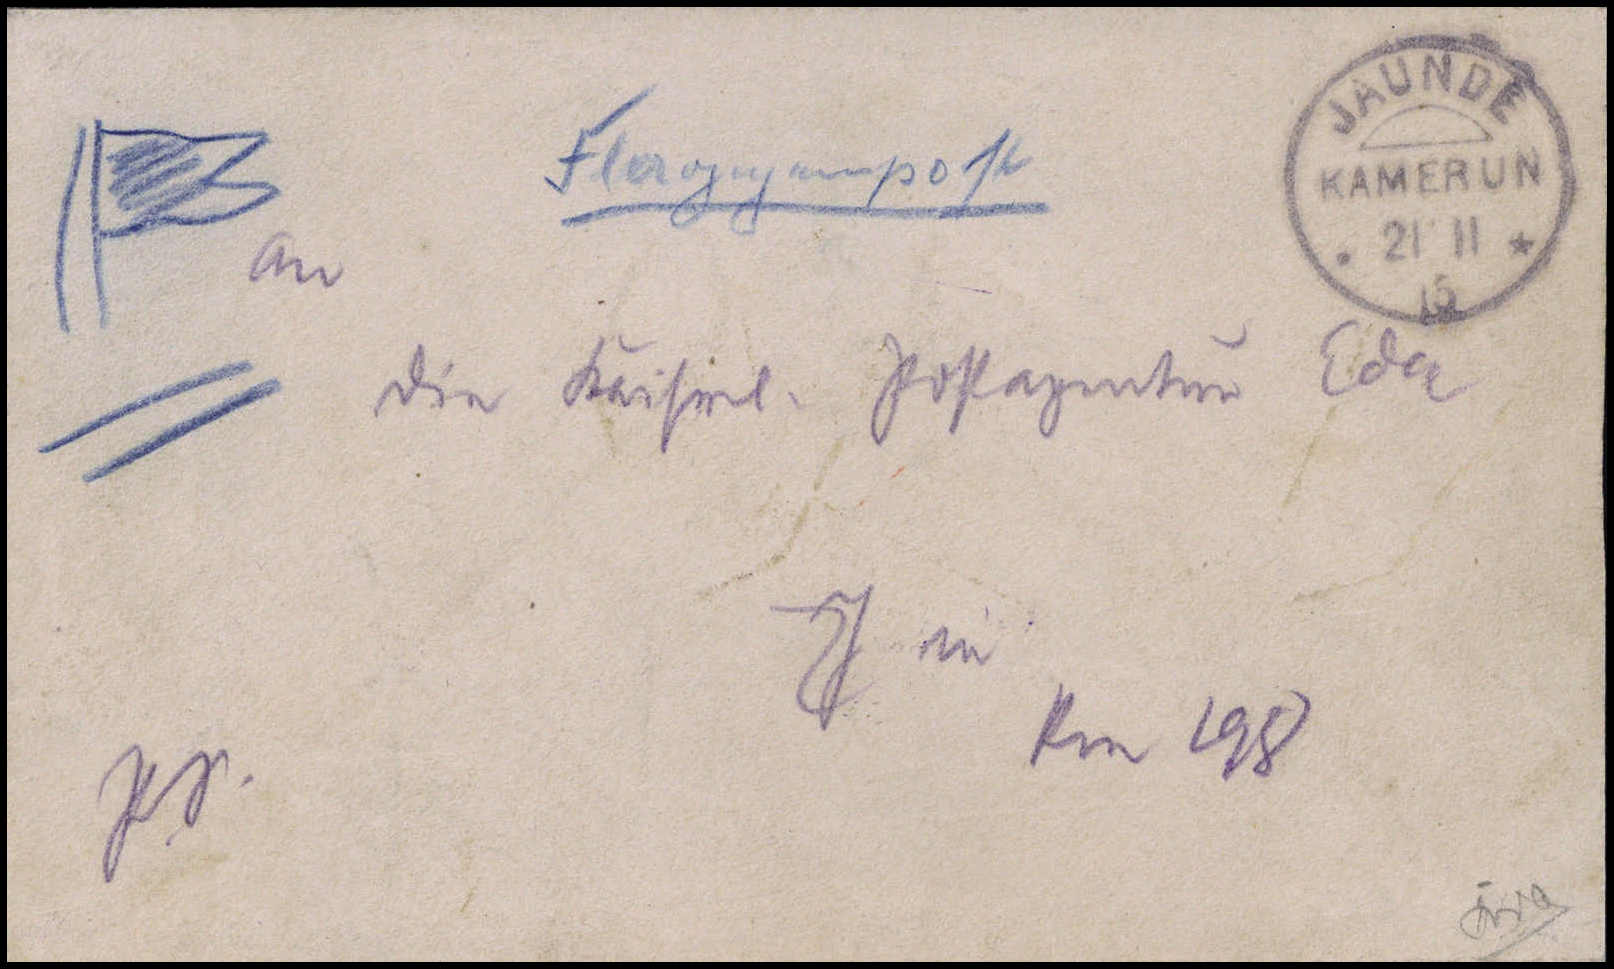 Flaggenpost
JAUNDE
KAMERUN
21 11
15
An
die Kaiserl. Postagentur Edea
in
Km 198